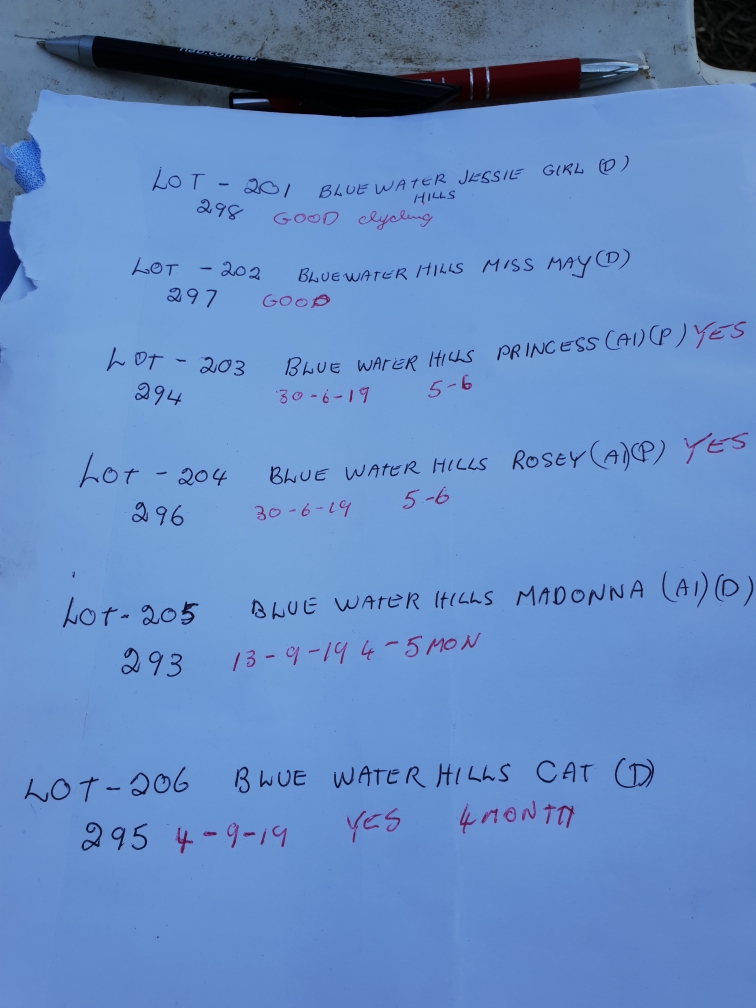 nab.com.au
LOT - 201 BLUEWATER JESSIE GIRL (D)
HILLS
298 GOOD clycling
LOT - 202 BLUEWATER HILLS MISS MAY (D)
297 GOOD
LOT - 203 BLUE WATER HILLS PRINCESS (AI) (P) YES
294 30-6-19 5-6
LOT - 204 BLUE WATER HILLS ROSEY (AI) (P) YES
296 30-6-19 5-6
LOT - 205 BLUE WATER HILLS MADONNA (AI) (D)
293 13-9-19 4-5 MON
LOT - 206 BLUE WATER HILLS CAT (D)
295 4-9-19 YES 4 MONTH